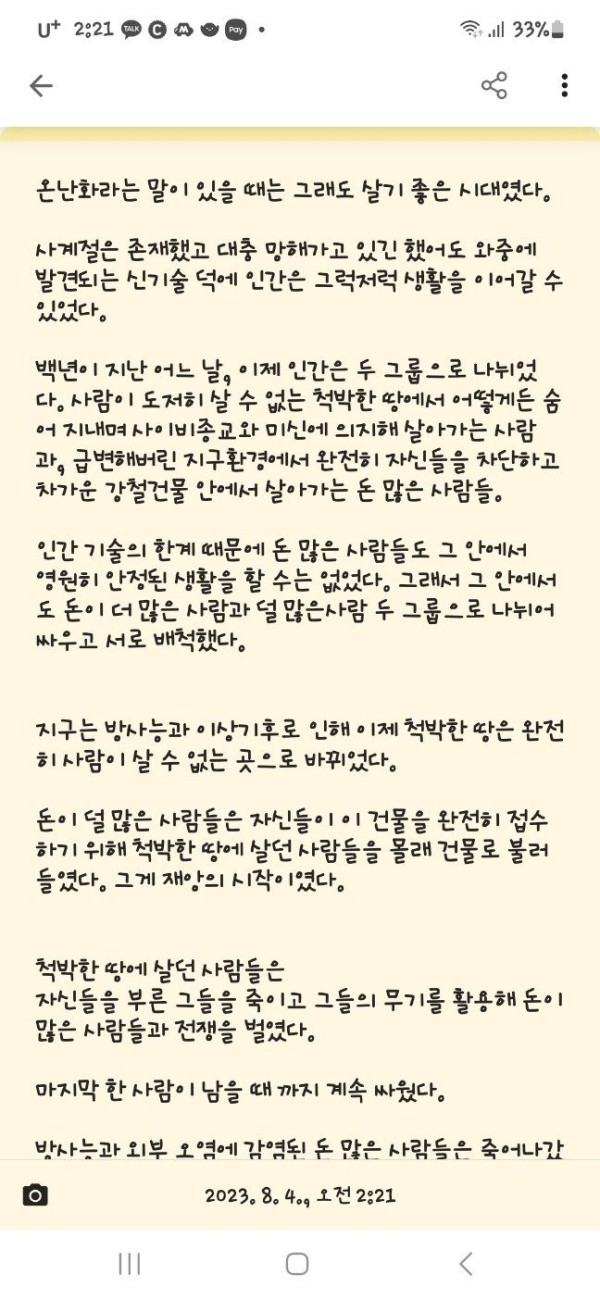 U+ 2:21 TALK C Pay • 33%
온난화라는 말이 있을 때는 그래도 살기 좋은 시대였다.
사계절은 존재했고 대충 망해가고 있긴 했어도 와중에
발견되는 신기술 덕에 인간은 그럭저럭 생활을 이어갈 수
있었다.
백년이 지난 어느 날, 이제 인간은 두 그룹으로 나뉘었
다. 사람이 도저히 살 수 없는 척박한 땅에서 어떻게든 숨
어 지내며 사이비종교와 미신에 의지해 살아가는 사람
과, 급변해버린 지구환경에서 완전히 자신들을 차단하고
차가운 강철건물 안에서 살아가는 돈 많은 사람들.
인간 기술의 한계 때문에 돈 많은 사람들도 그 안에서
영원히 안정된 생활을 할 수는 없었다. 그래서 그 안에서
도 돈이 더 많은 사람과 덜 많은사람 두 그룹으로 나뉘어
싸우고 서로 배척했다.
지구는 방사능과 이상기후로 인해 이제 척박한 땅은 완전
히 사람이 살 수 없는 곳으로 바뀌었다.
돈이 덜 많은 사람들은 자신들이 이 건물을 완전히 접수
하기 위해 척박한 땅에 살던 사람들을 몰래 건물로 불러
들였다. 그게 재앙의 시작이였다.
척박한 땅에 살던 사람들은
자신들을 부른 그들을 죽이고 그들의 무기를 활용해 돈이
많은 사람들과 전쟁을 벌였다.
마지막 한 사람이 남을 때 까지 계속 싸웠다.
방사능과 외부 오염에 감염된 돈 많은 사람들은 죽어나갔
2023. 8. 4., 오전 2:21